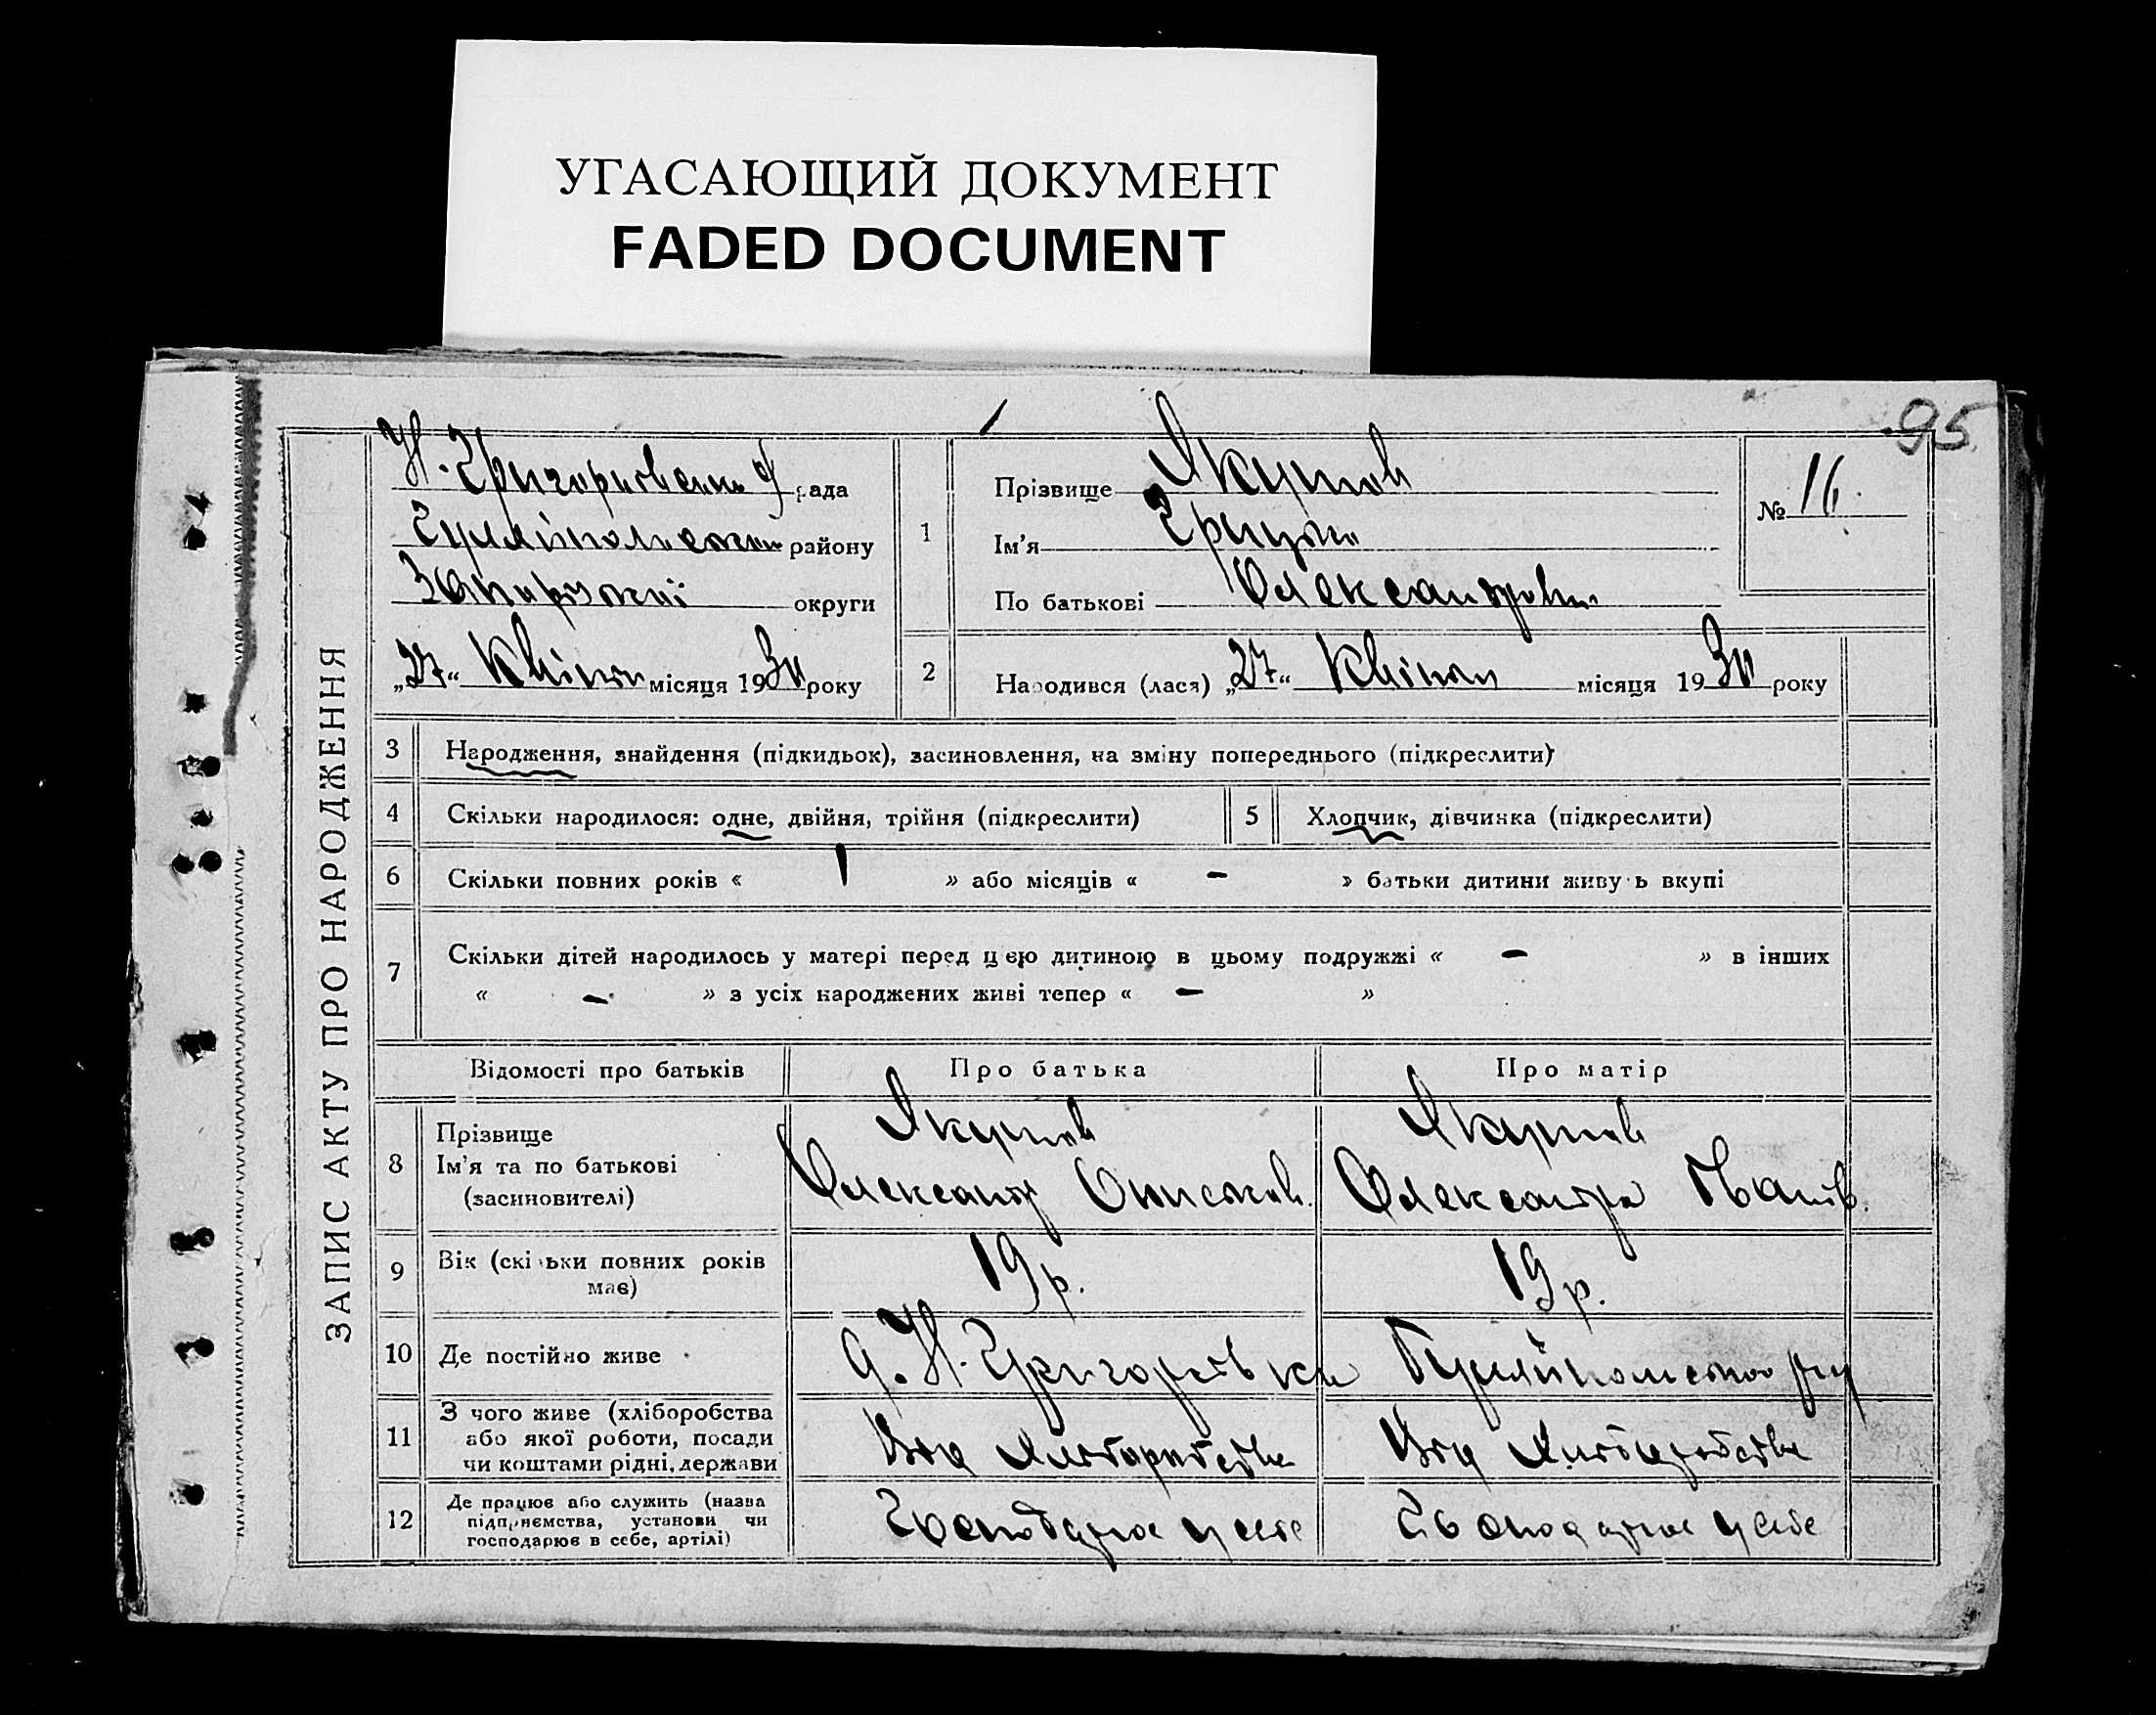 УГАСАЮЩИЙ ДОКУМЕНТ
FADED DOCUMENT
95
ЗАПИС АКТУ ПРО НАРОДЖЕННЯ
рада
району
Запорізької округи
„27“ Квітня місяця 1930 року
1
Прізвище
Ім'я Грицько
По батькові Олександров.
№ 16.
2
Народився (лася) „27“ Квітня місяця 1930 року
3 Народження, знайдення (підкидьок), засиновлення, на зміну попереднього (підкреслити)
4 Скільки народилося: одне, двійня, трійня (підкреслити)
5 Хлопчик, дівчинка (підкреслити)
6 Скільки повних років « 1 » або місяців « - » батьки дитини живуть вкупі
7 Скільки дітей народилось у матері перед цією дитиною в цьому подружжі « - » в інших
« - » з усіх народжених живі тепер « - »
Відомості про батьків Про батька Про матір
8 Прізвище
Ім'я та по батькові
(засиновителі)
Олександр
Олександра Іванів.
9 Вік (скільки повних років
має)
19 р.
19 р.
10 Де постійно живе
Н. Григорівка
11 З чого живе (хліборобства
або якої роботи, посади
чи коштами рідні, держави
Від хліборобства
Від хліборобства
12 Де працює або служить (назва
підприємства, установи чи
господарює в себе, артілі)
Господарює у себе
Господарює у себе